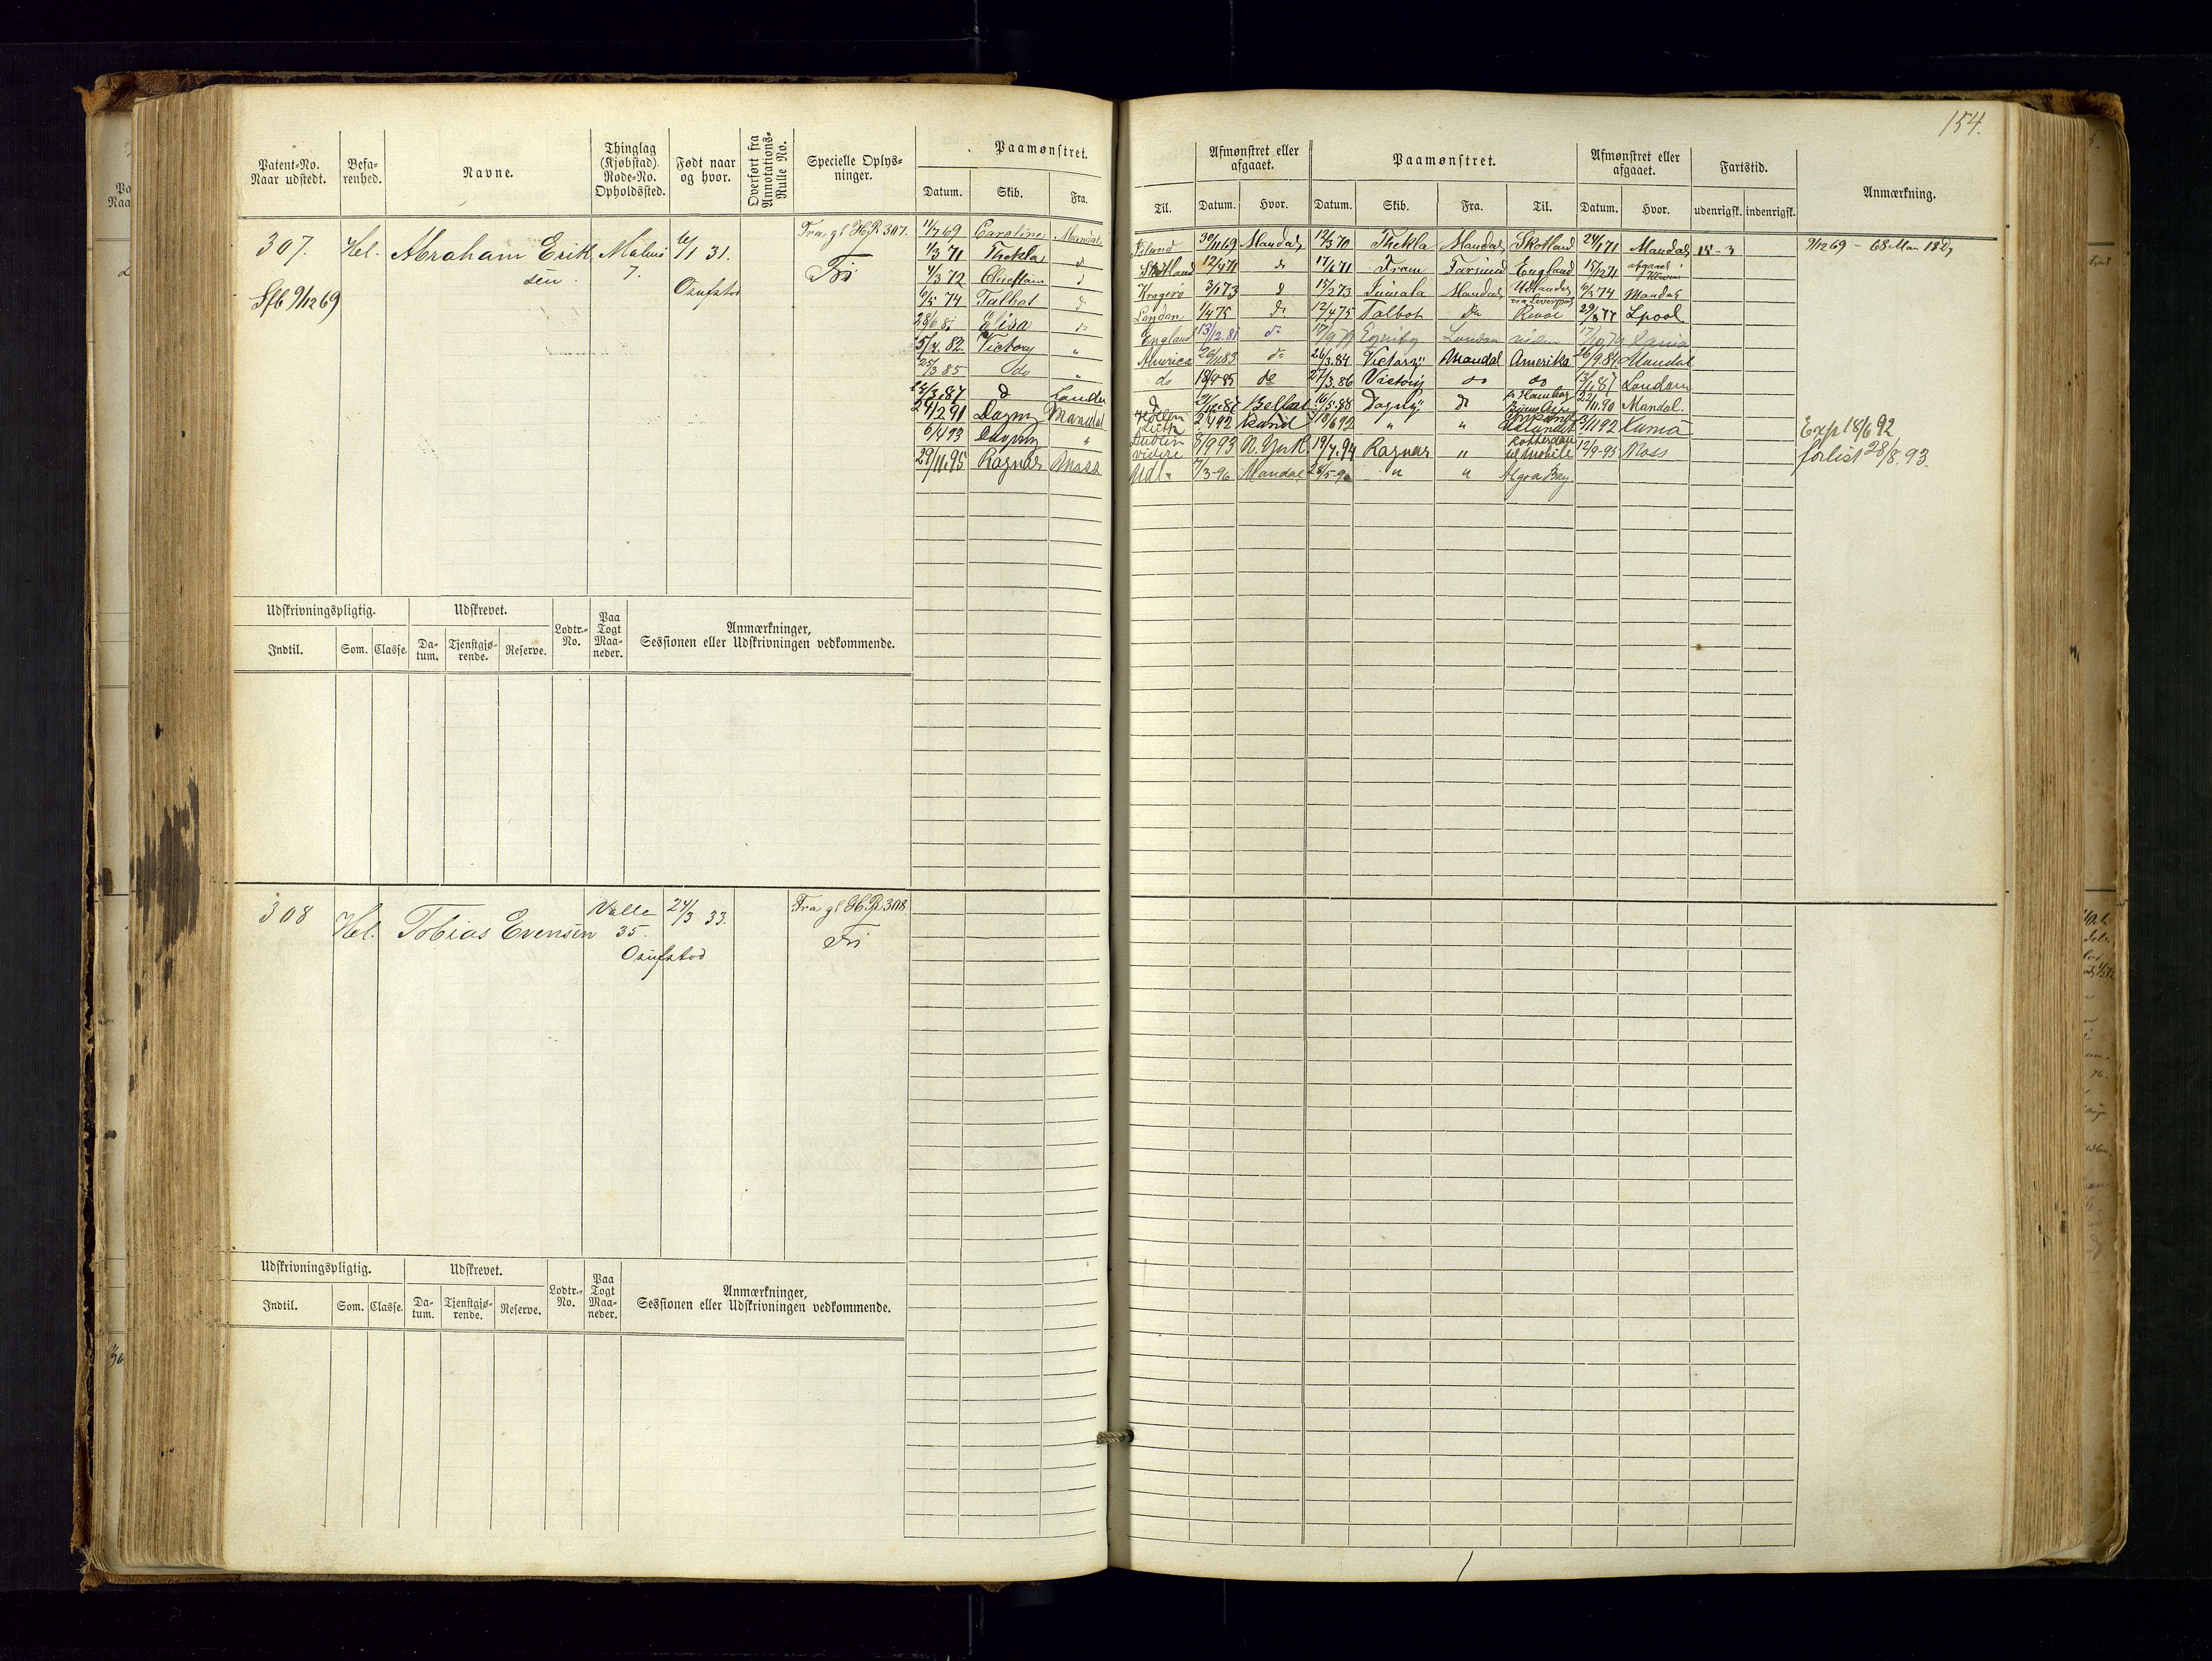 154.
Patent-No. Naar udstedt.
Befarenhed.
Navne.
Thinglag (Kjøbstad). Rode-No. Opholdssted.
Født naar og hvor.
Overført fra Annotations-Rulle No.
Specielle Oplysninger.
Paamønstret.
Datum. Skib. Fra. Til.
Afmønstret eller afgaaet.
Datum. Hvor.
Paamønstret.
Datum. Skib. Fra. Til.
Afmønstret eller afgaaet.
Datum. Hvor.
Fartstid.
udenrigsk. indenrigsk.
Anmærkning.
307. Hel. Abraham Eriksen Malmø 7. 6/1 31. Osufstod Fra gl HR 307. Fri
Sfb 9/12 69
1/7 69 Caroline Mandal Island 30/11 69 Mandal 12/3 70 Thekla Mandal Skotland 24/1 71 Mandal 15-3 9/12 69 -
1/3 71 Thekla do Skotland 12/4 71 do 17/4 71 Fram Farsund England 15/12 71 afgaaet
4/3 72 Chieftain do Kragerø 3/1 73 do 15/2 73 Jumala Mandal 6/3 74 Mandal
6/5 74 Talbot do London 1/4 75 do 12/4 75 Talbot do 29/5 77 Lpool
Elisa do England 13/12.81 do London viden
15/4. 82. Victory " America 26/11 83 do 26/3.84 Victory Mandal Amerika 26/9.84 Mandal
25/3 85 do " do 18/9 85 do 27/3.86 Victory do do 13/1.87 London
do London do Belfast 16/5.88 Dagny do 22/11.90 Mandal.
29/12 91 Dagny Mandal 18/6 92 " " 3/11 92 Exp 18/6 92
6/4 93 Dagny " Dublin videre 8/9 93 N. York. 19/7.94 Ragnar " Rotterdam 12/9-95 Moss forlist 28/8. 93.
29/11.95 Ragnar Moss Mdl. 7/3-96 Mandal " " Algoa Bay
Udskrivningspligtig.
Indtil. Som. Classe.
Udskrevet.
Datum. Tjenstgjørende. Reserve.
Lodtr.-No.
Paa Togt Maaneder.
Anmærkninger, Sessionen eller Udskrivningen vedkommende.
308 Hel. Tobias Evensen Valle 35. Osufstod 24/3 33. Fra gl HR 308. Fri
Udskrivningspligtig.
Indtil. Som. Classe.
Udskrevet.
Datum. Tjenstgjørende. Reserve.
Lodtr.-No.
Paa Togt Maaneder.
Anmærkninger, Sessionen eller Udskrivningen vedkommende.